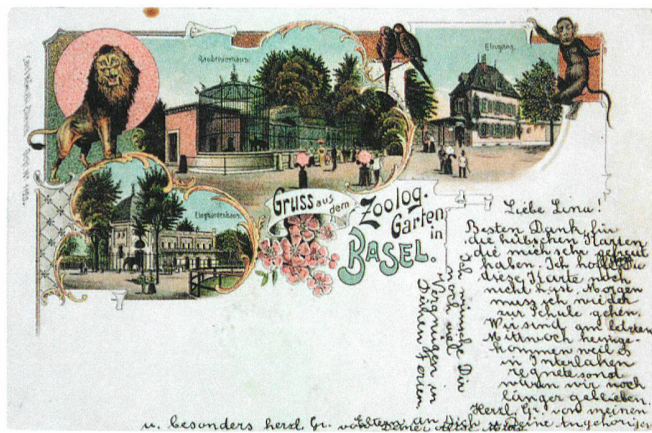 Raubtierhaus.
Eingang.
Elephantenhaus.
Gruss aus dem
Zoolog.
Garten
in
BASEL.
Liebe Lina!
Besten Dank für
die hübschen Karten
die mich sehr gefreut
haben. Ich hoffe Du
diese Karte noch
nicht hast. Morgen
muss ich wieder
zur Schule gehen.
Wir sind am letzten
Mittwoch heimge-
kommen weil es
in Interlaken
regnete sonst
wären wir noch
länger geblieben.
Herzl. Gr. von meinen
Eltern an Dich u. Deine Angehörigen
u. besonders herzl. Gr. von Deiner
Ich wünsche Dir
noch viel
Vergnügen in
Deinen Ferien